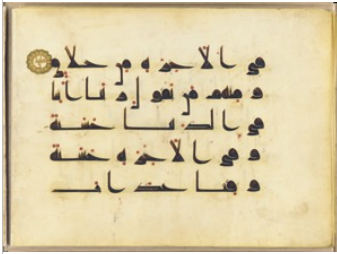 في الاخرة من خلاق و
منهم من يقول ربنا اتنا
في الدنيا حسنة
و في الاخرة حسنة
و قنا عذاب